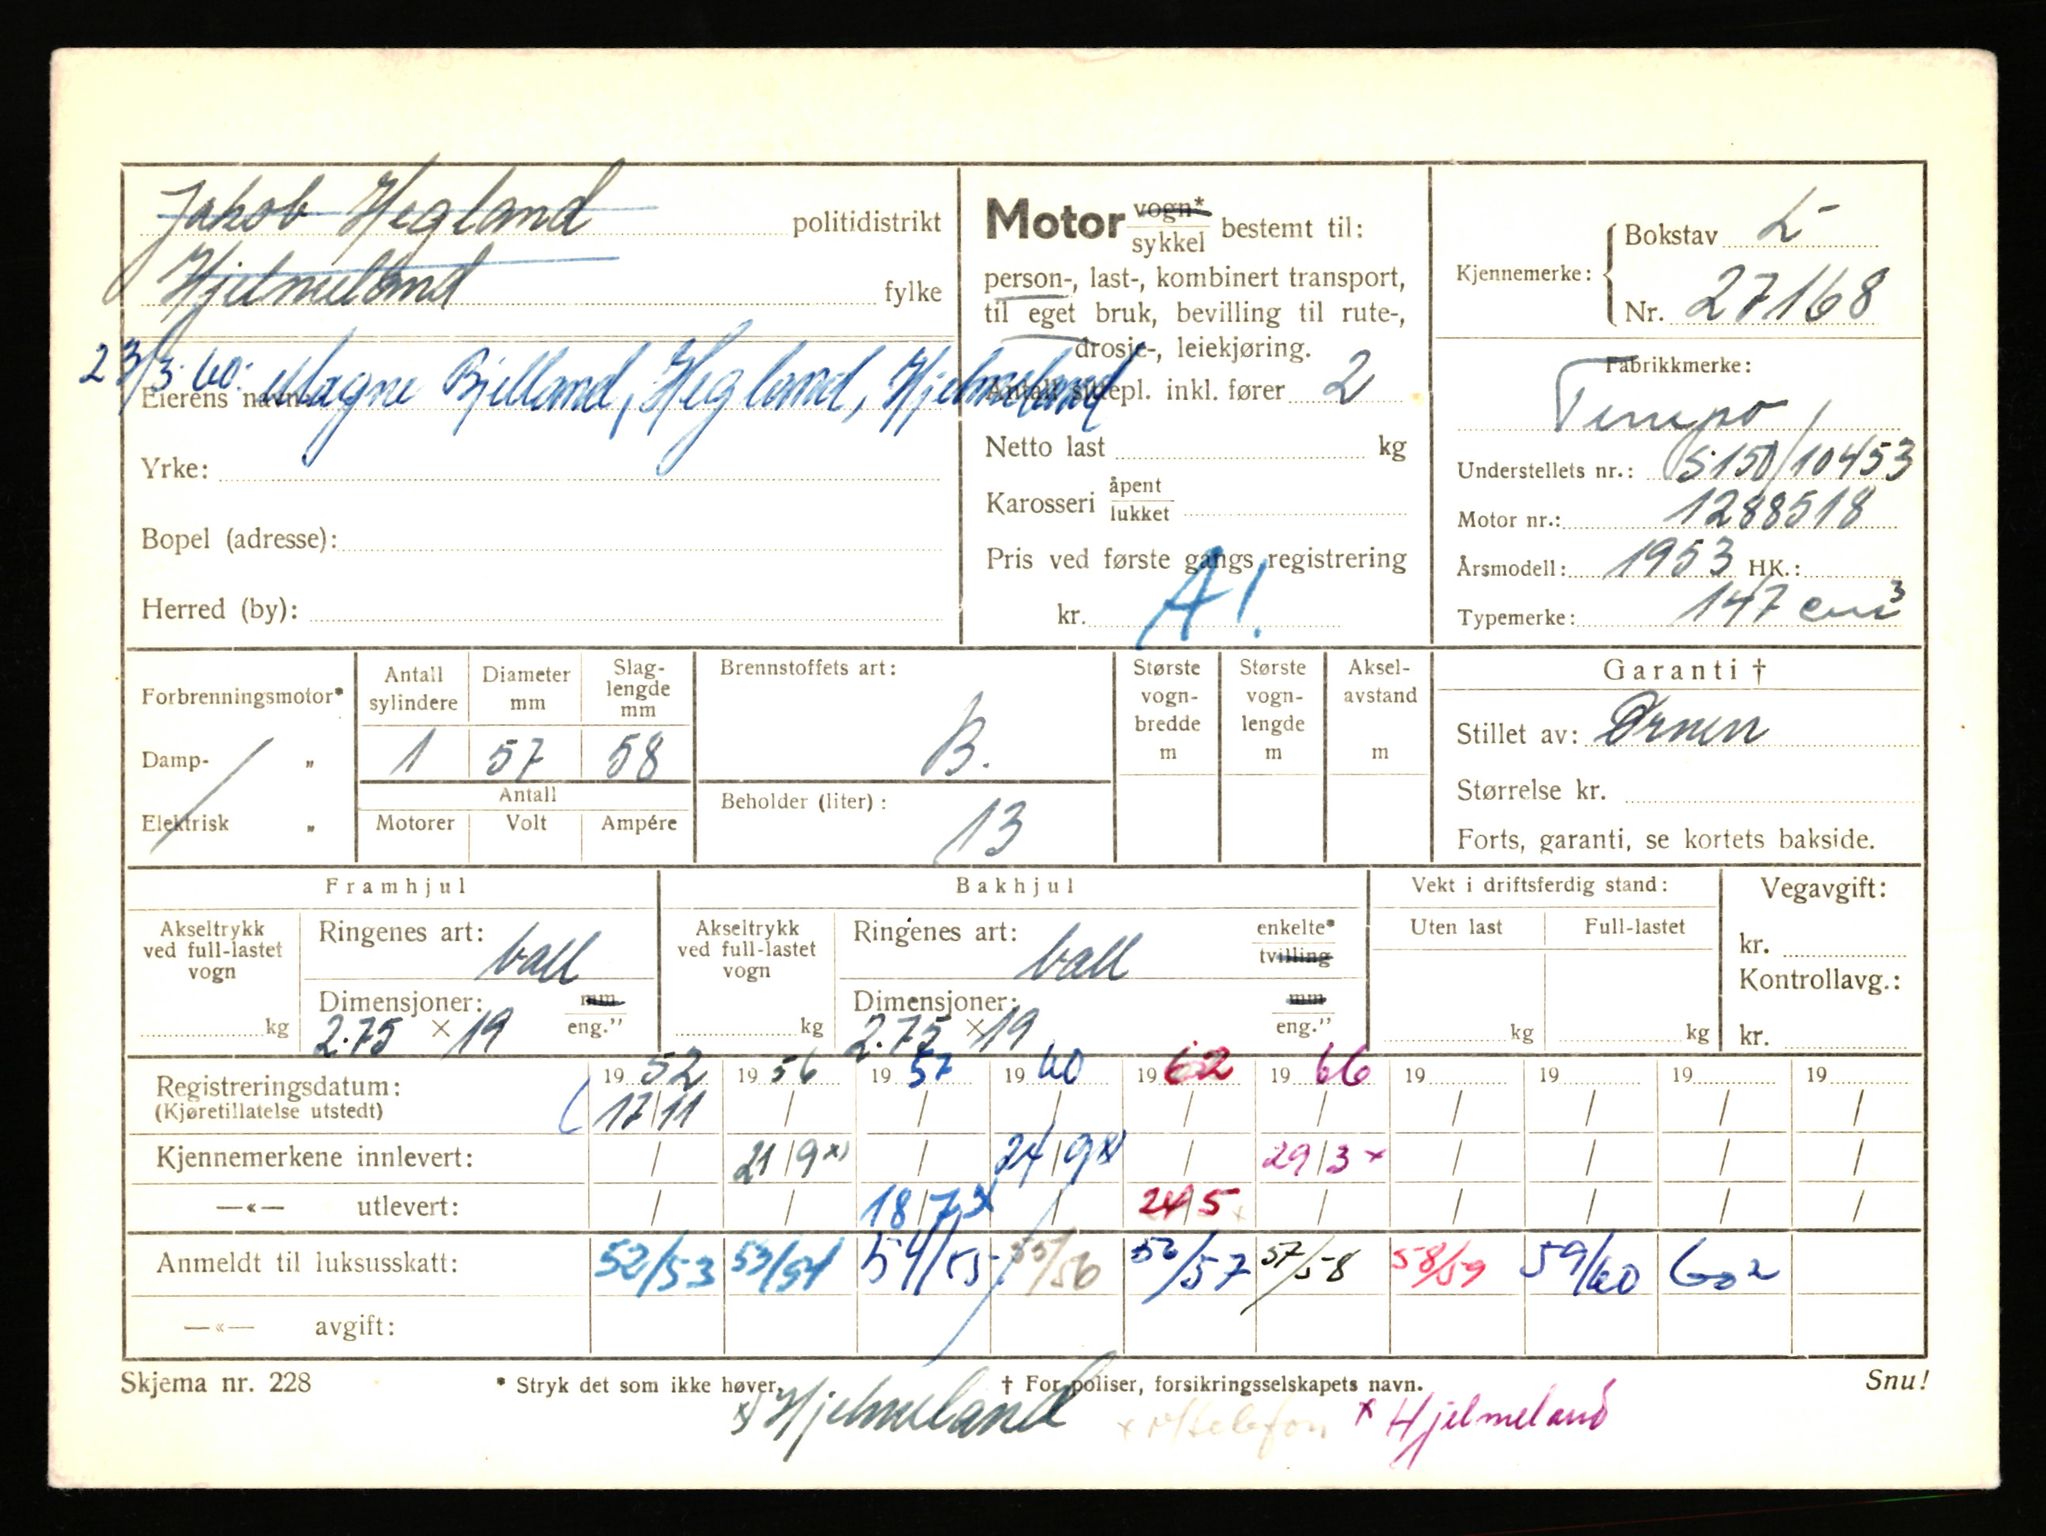 Jakob Hegland politidistrikt
Hjelmeland fylke
23/3-60: Magne Bjelland, Hegland, Hjelmeland
Eierens navn
Yrke:
Bopel (adresse):
Herred (by):
Motor vogn* sykkel bestemt til:
person-, last-, kombinert transport,
til eget bruk, bevilling til rute-,
drosje-, leiekjøring.
Antall sittepl. inkl. fører 2
Netto last kg
Karosseri åpent lukket
Pris ved første gangs registrering
kr. A!
Kjennemerke: Bokstav L-
Nr. 27168
Fabrikkmerke:
Tempo
Understellets nr.: S150/10453
Motor nr.: 1288518
Årsmodell: 1953 HK.:
Typemerke: 147 cm³
Forbrenningsmotor*
Damp- „
Elektrisk „
Antall sylindere 1
Diameter mm 57
Slag-lengde mm 58
Antall
Motorer Volt Ampére
Brennstoffets art:
B.
Beholder (liter):
13
Største vogn-bredde m
Største vogn-lengde m
Aksel-avstand m
Garanti †
Stillet av: Ørnen
Størrelse kr.
Forts, garanti, se kortets bakside.
Framhjul
Akseltrykk ved full-lastet vogn
kg
Ringenes art: ball
Dimensjoner: mm
2.75 × 19 eng."
Bakhjul
Akseltrykk ved full-lastet vogn
kg
Ringenes art: ball enkelte* tvilling
Dimensjoner: mm
2.75 × 19 eng."
Vekt i driftsferdig stand:
Uten last Full-lastet
kg kg
Vegavgift:
kr.
Kontrollavg.:
kr.
Registreringsdatum: 1952 1956 1957 1960 1962 1966 19 19 19 19
(Kjøretillatelse utstedt) 17/11 / / / / / / / / /
Kjennemerkene innlevert: / 21/9 x) / 24/9 x) / 29/3 x / / / /
—«— utlevert: / / 18/7 x / 24/5 x / / / / /
Anmeldt til luksusskatt: 52/53 53/54 54/55 55/56 56/57 57/58 58/59 59/60 60 2
—«— avgift:
Skjema nr. 228 * Stryk det som ikke høver. † For poliser, forsikringsselskapets navn. Snu!
x) Hjelmeland x telefon x Hjelmeland